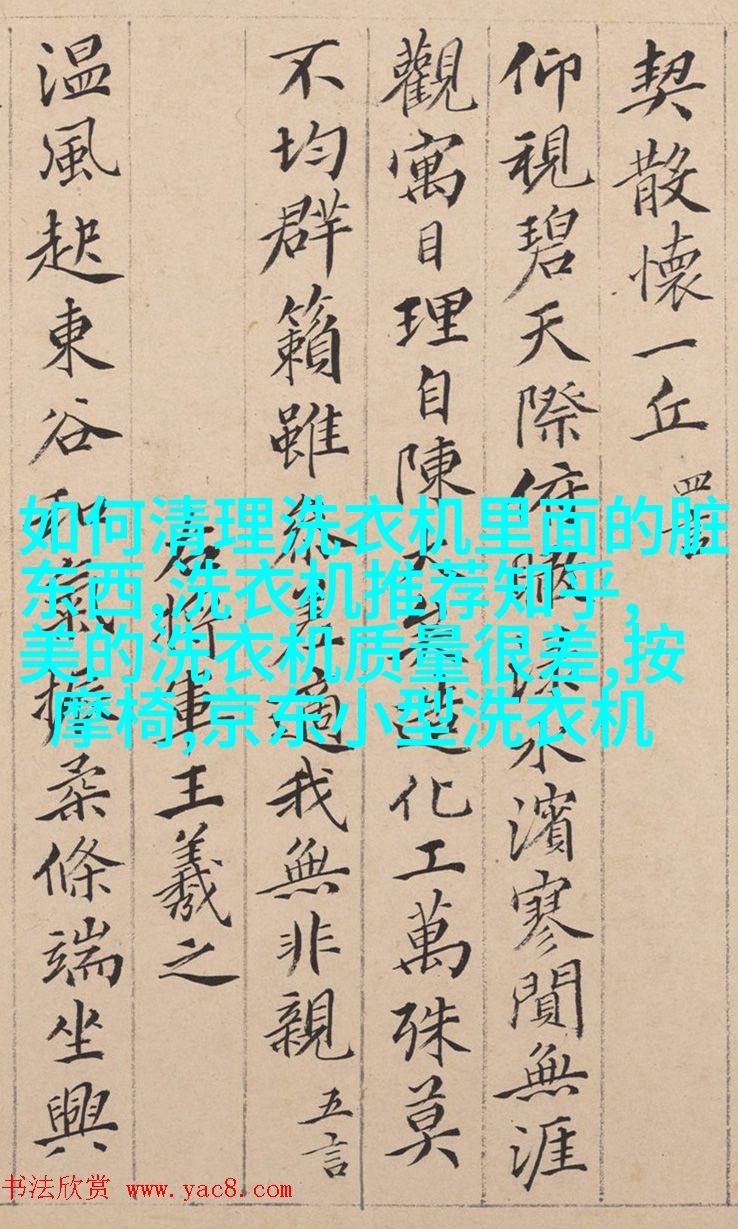 契散懷一丘 四言
仰視碧天際俯瞰淥水濱寥閴無涯
觀寓目理自陳大矣造化工萬殊莫
不均群籟雖參差適我無非親 五言
右將軍王羲之
温風起東谷和氣振柔條端坐興
如何清理洗衣机里面的脏
东西,洗衣机推荐知乎,
美的洗衣机质量很差,按
摩椅,京东小型洗衣机
书法欣赏 www.yac8.com